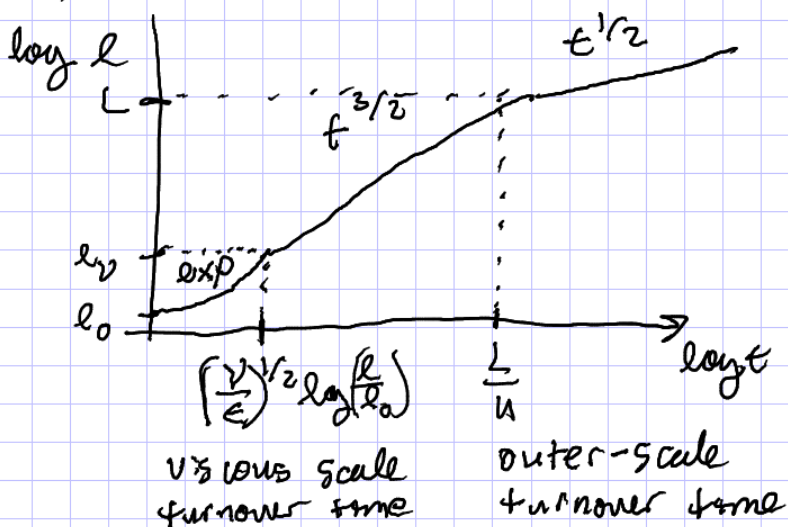 log l
L
t^{1/2}
t^{3/2}
l_ν
exp
l_0
log t
(ν/ε)^{1/2} log(l/l_0)
L/u
viscous scale
turnover time
outer-scale
turnover time